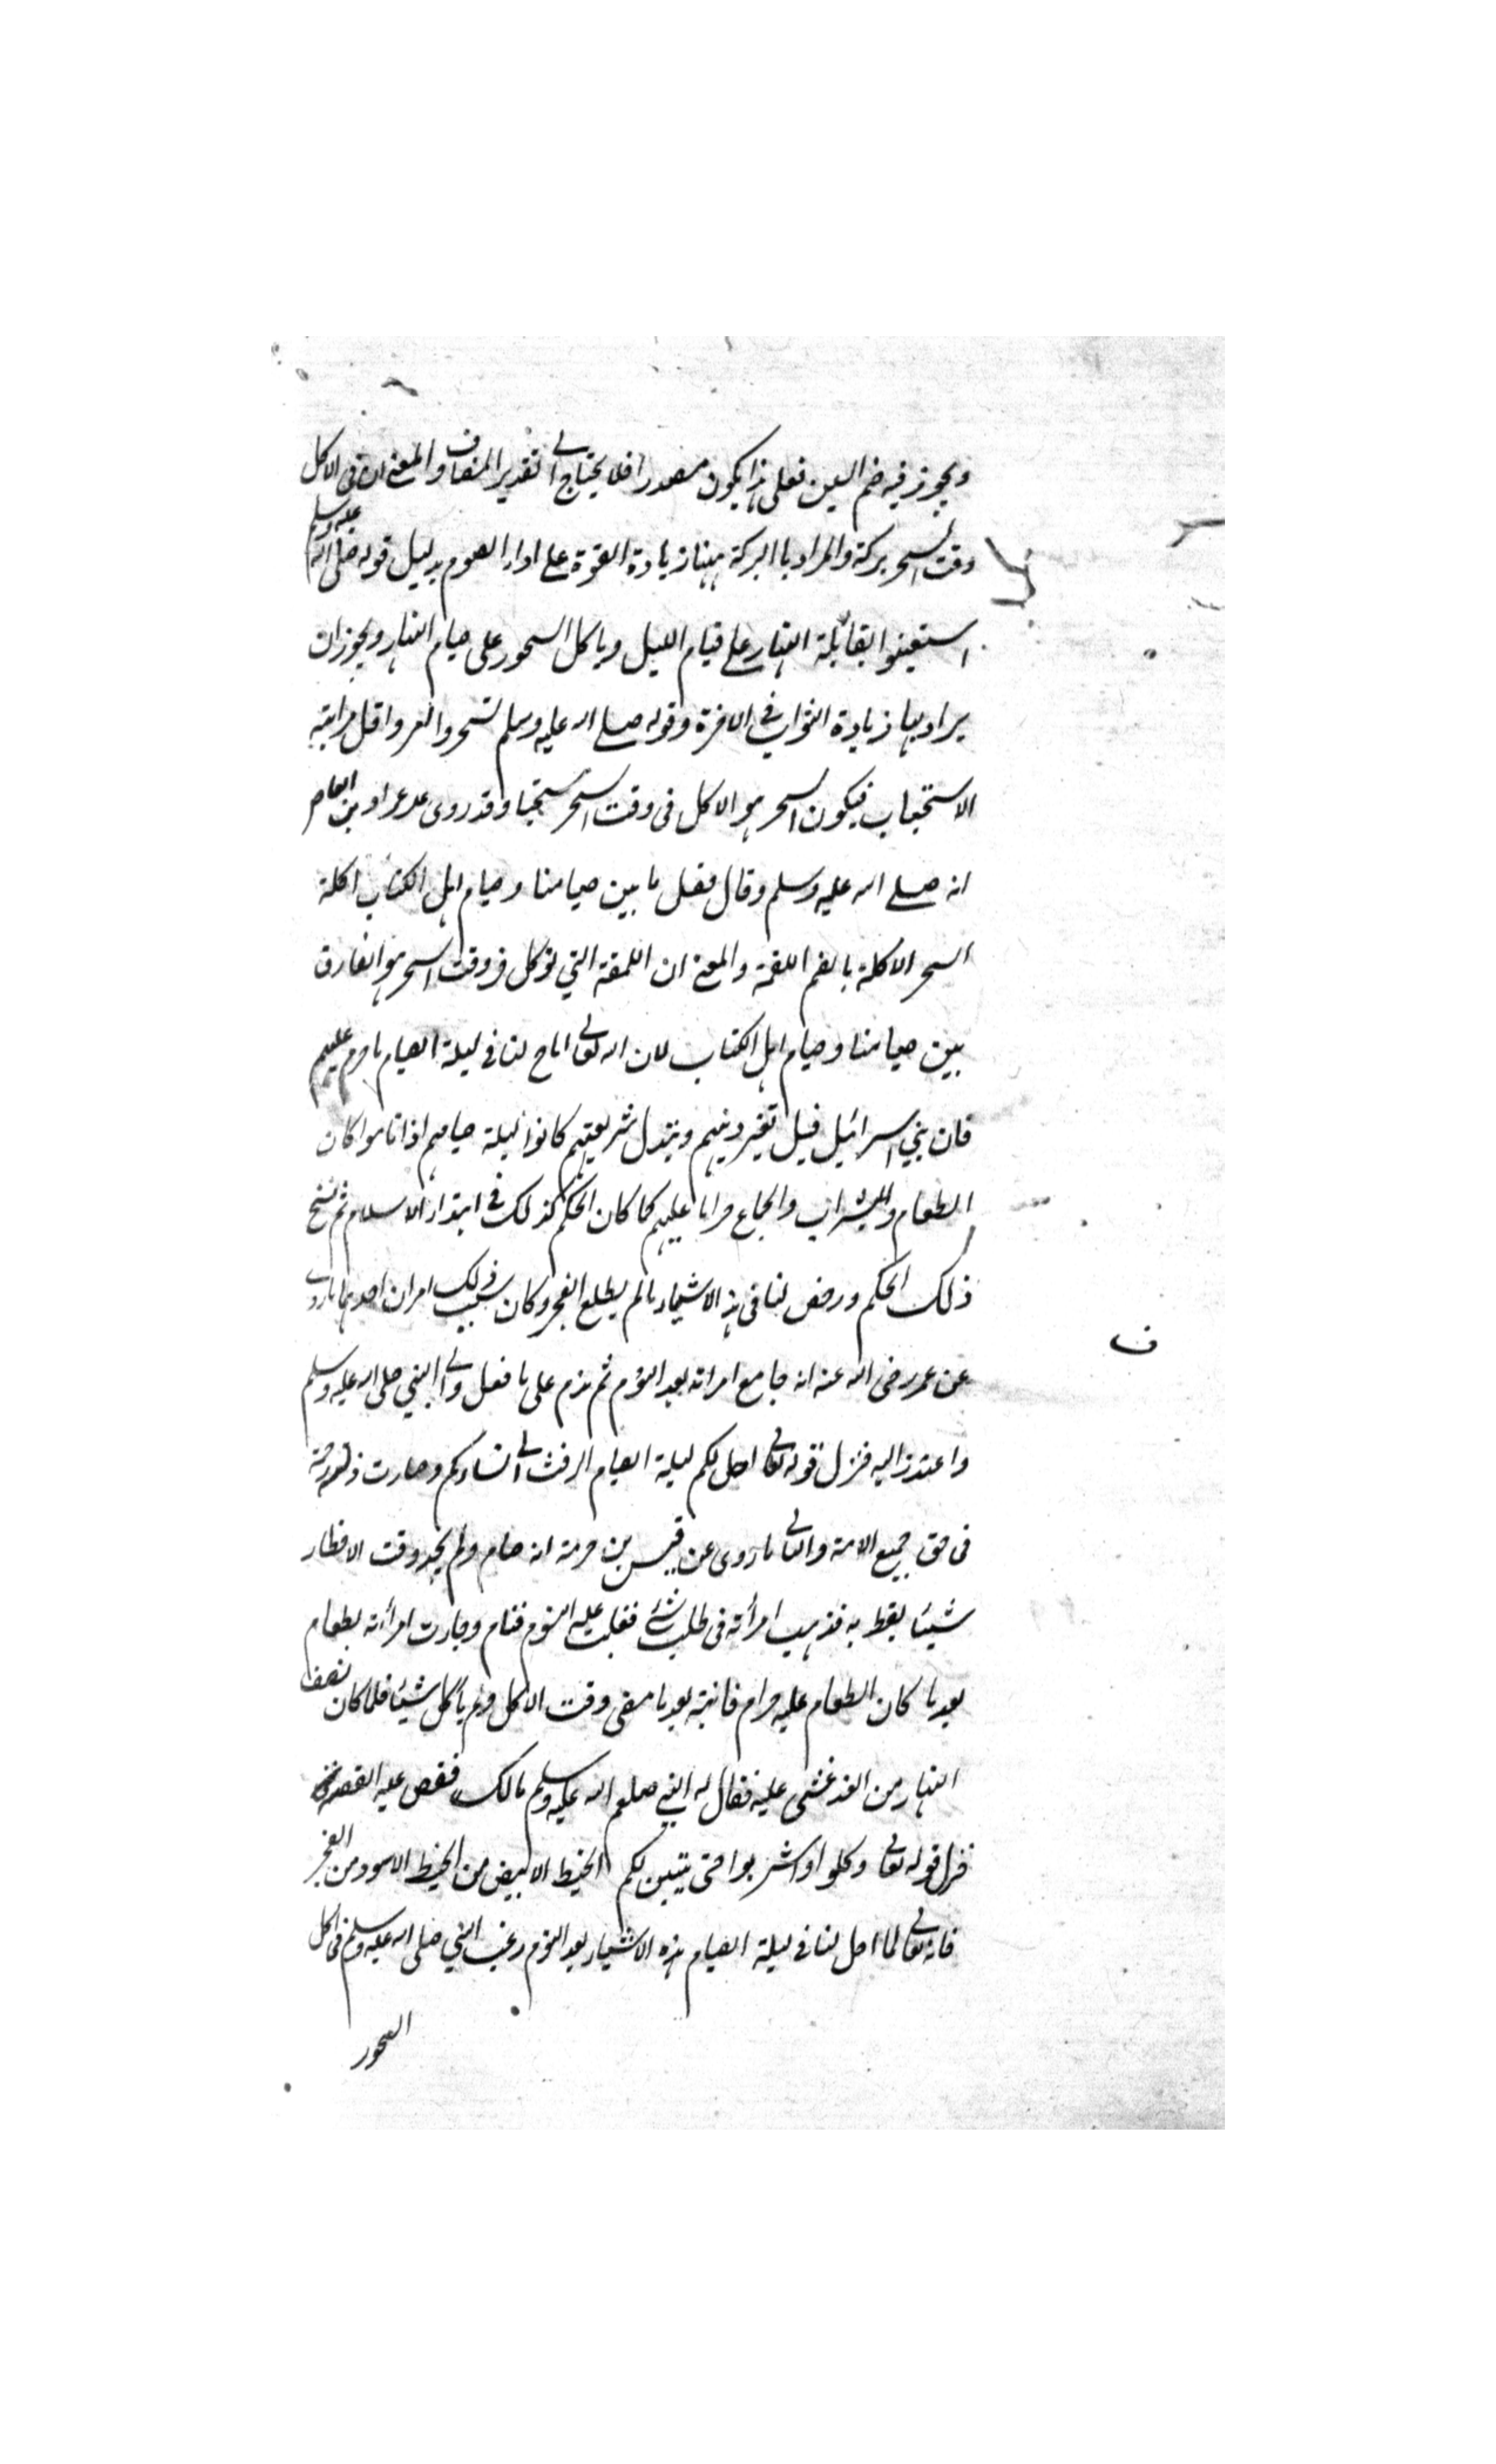 ويجوز فيه ضم السين فعلى هذا يكون مصدرا فلا يحتاج الى تقدير المضاف والمعنى ان فى الاكل
وقت السحر بركة والمراد باالبركة ههنا زيادة القوة على اداء الصوم بدليل قوله صلى الله عليه وسلم
استعينوا بقائلة النهار على قيام الليل وباكل السحور على صيام النهار ويجوز ان
يراد بها زيادة الثواب فى الاخرة وقوله صلى الله عليه وسلم تسحروا امر واقل مراتبه
الاستحباب فيكون السحر هو الاكل فى وقت السحر مستحبا وقد روى عمرو بن العاص
انه صلى الله عليه وسلم وقال فصل ما بين صيامنا وصيام اهل الكتاب اكلة
السحر الاكلة بالضم اللقمة والمعنى ان اللمقة التي توكل فى وقت السحر هو الفارق
بين صيامنا وصيام اهل الكتاب لان الله تعالى اباح لنا فى ليلة الصيام ما حرم عليهم
فان بني اسرائيل قبل تغير دينهم وتبدل شريعتهم كانوا ليلة صيامهم اذا ناموا كان
الطعام والشراب والجماع حراما عليهم كما كان الحكم كذلك فى ابتداء الاسلام ثم نسخ
ذلك الحكم ورخص لنا فى هذه الاشياء ما لم يطلع الفجر وكان سبب ذلك امران احدهما ما روى
عن عمر رضى الله عنه انه جامع امراته بعد النوم ثم ندم على ما فعل واتى النبي صلى الله عليه وسلم
واعتذر اليه فنزل قوله تعالى احل لكم ليلة الصيام الرفث الى نسائكم وصارت زلته رحمة
فى حق جميع الامة والثانى ما روى عن قيس بن صرمة انه صام ولم يجد وقت الافطار
شيئا يفطر به فذهبت امرأته فى طلب شئ فغلب عليه النوم فنام وجاءت امرأته بطعام
بعد ما كان الطعام عليه حرام فانتبه بعد ما مضى وقت الاكل ولم يأكل شيئا فلما كان نصف
النهار من الغد غشى عليه فقال له النبي صلعم الله عليه وسلم مالك فقص عليه القصة
فنزل قوله تعالى وكلوا واشربوا حتى يتبين لكم الخيط الابيض من الخيط الاسود من الفجر
فانه تعالى لما احل لنا فى ليلة الصيام هذه الاشياء بعد النوم رغب النبي صلى الله عليه وسلم فى اكل
السحور